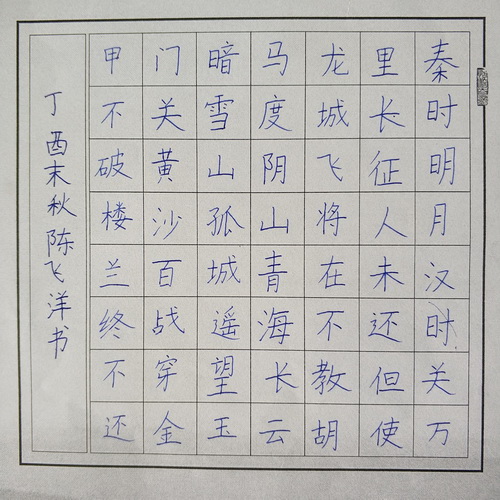 秦时明月汉时关万
里长征人未还但使
龙城飞将在不教胡
马度阴山青海长云
暗雪山孤城遥望玉
门关黄沙百战穿金
甲不破楼兰终不还
丁酉末秋陈飞洋书